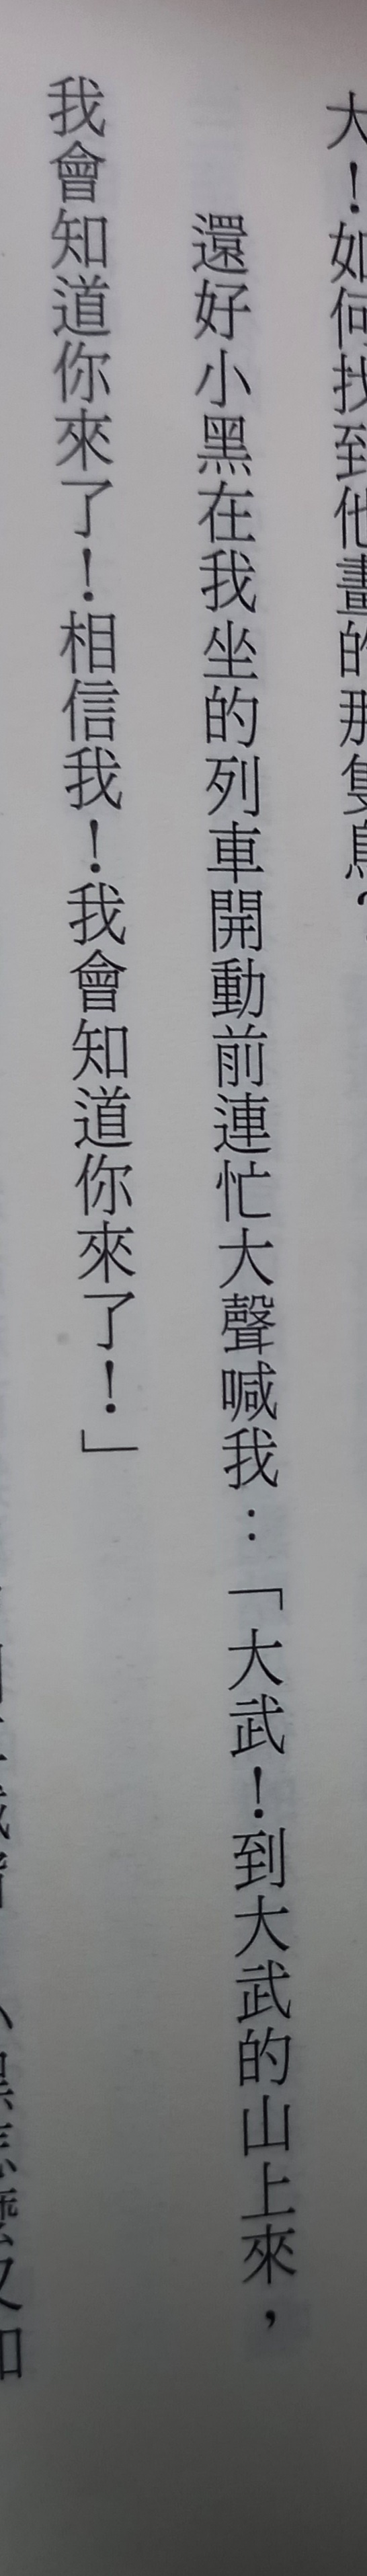 大！如何找到他畫的那隻鳥？
還好小黑在我坐的列車開動前連忙大聲喊我：「大武！到大武的山上來，
我會知道你來了！相信我！我會知道你來了！」